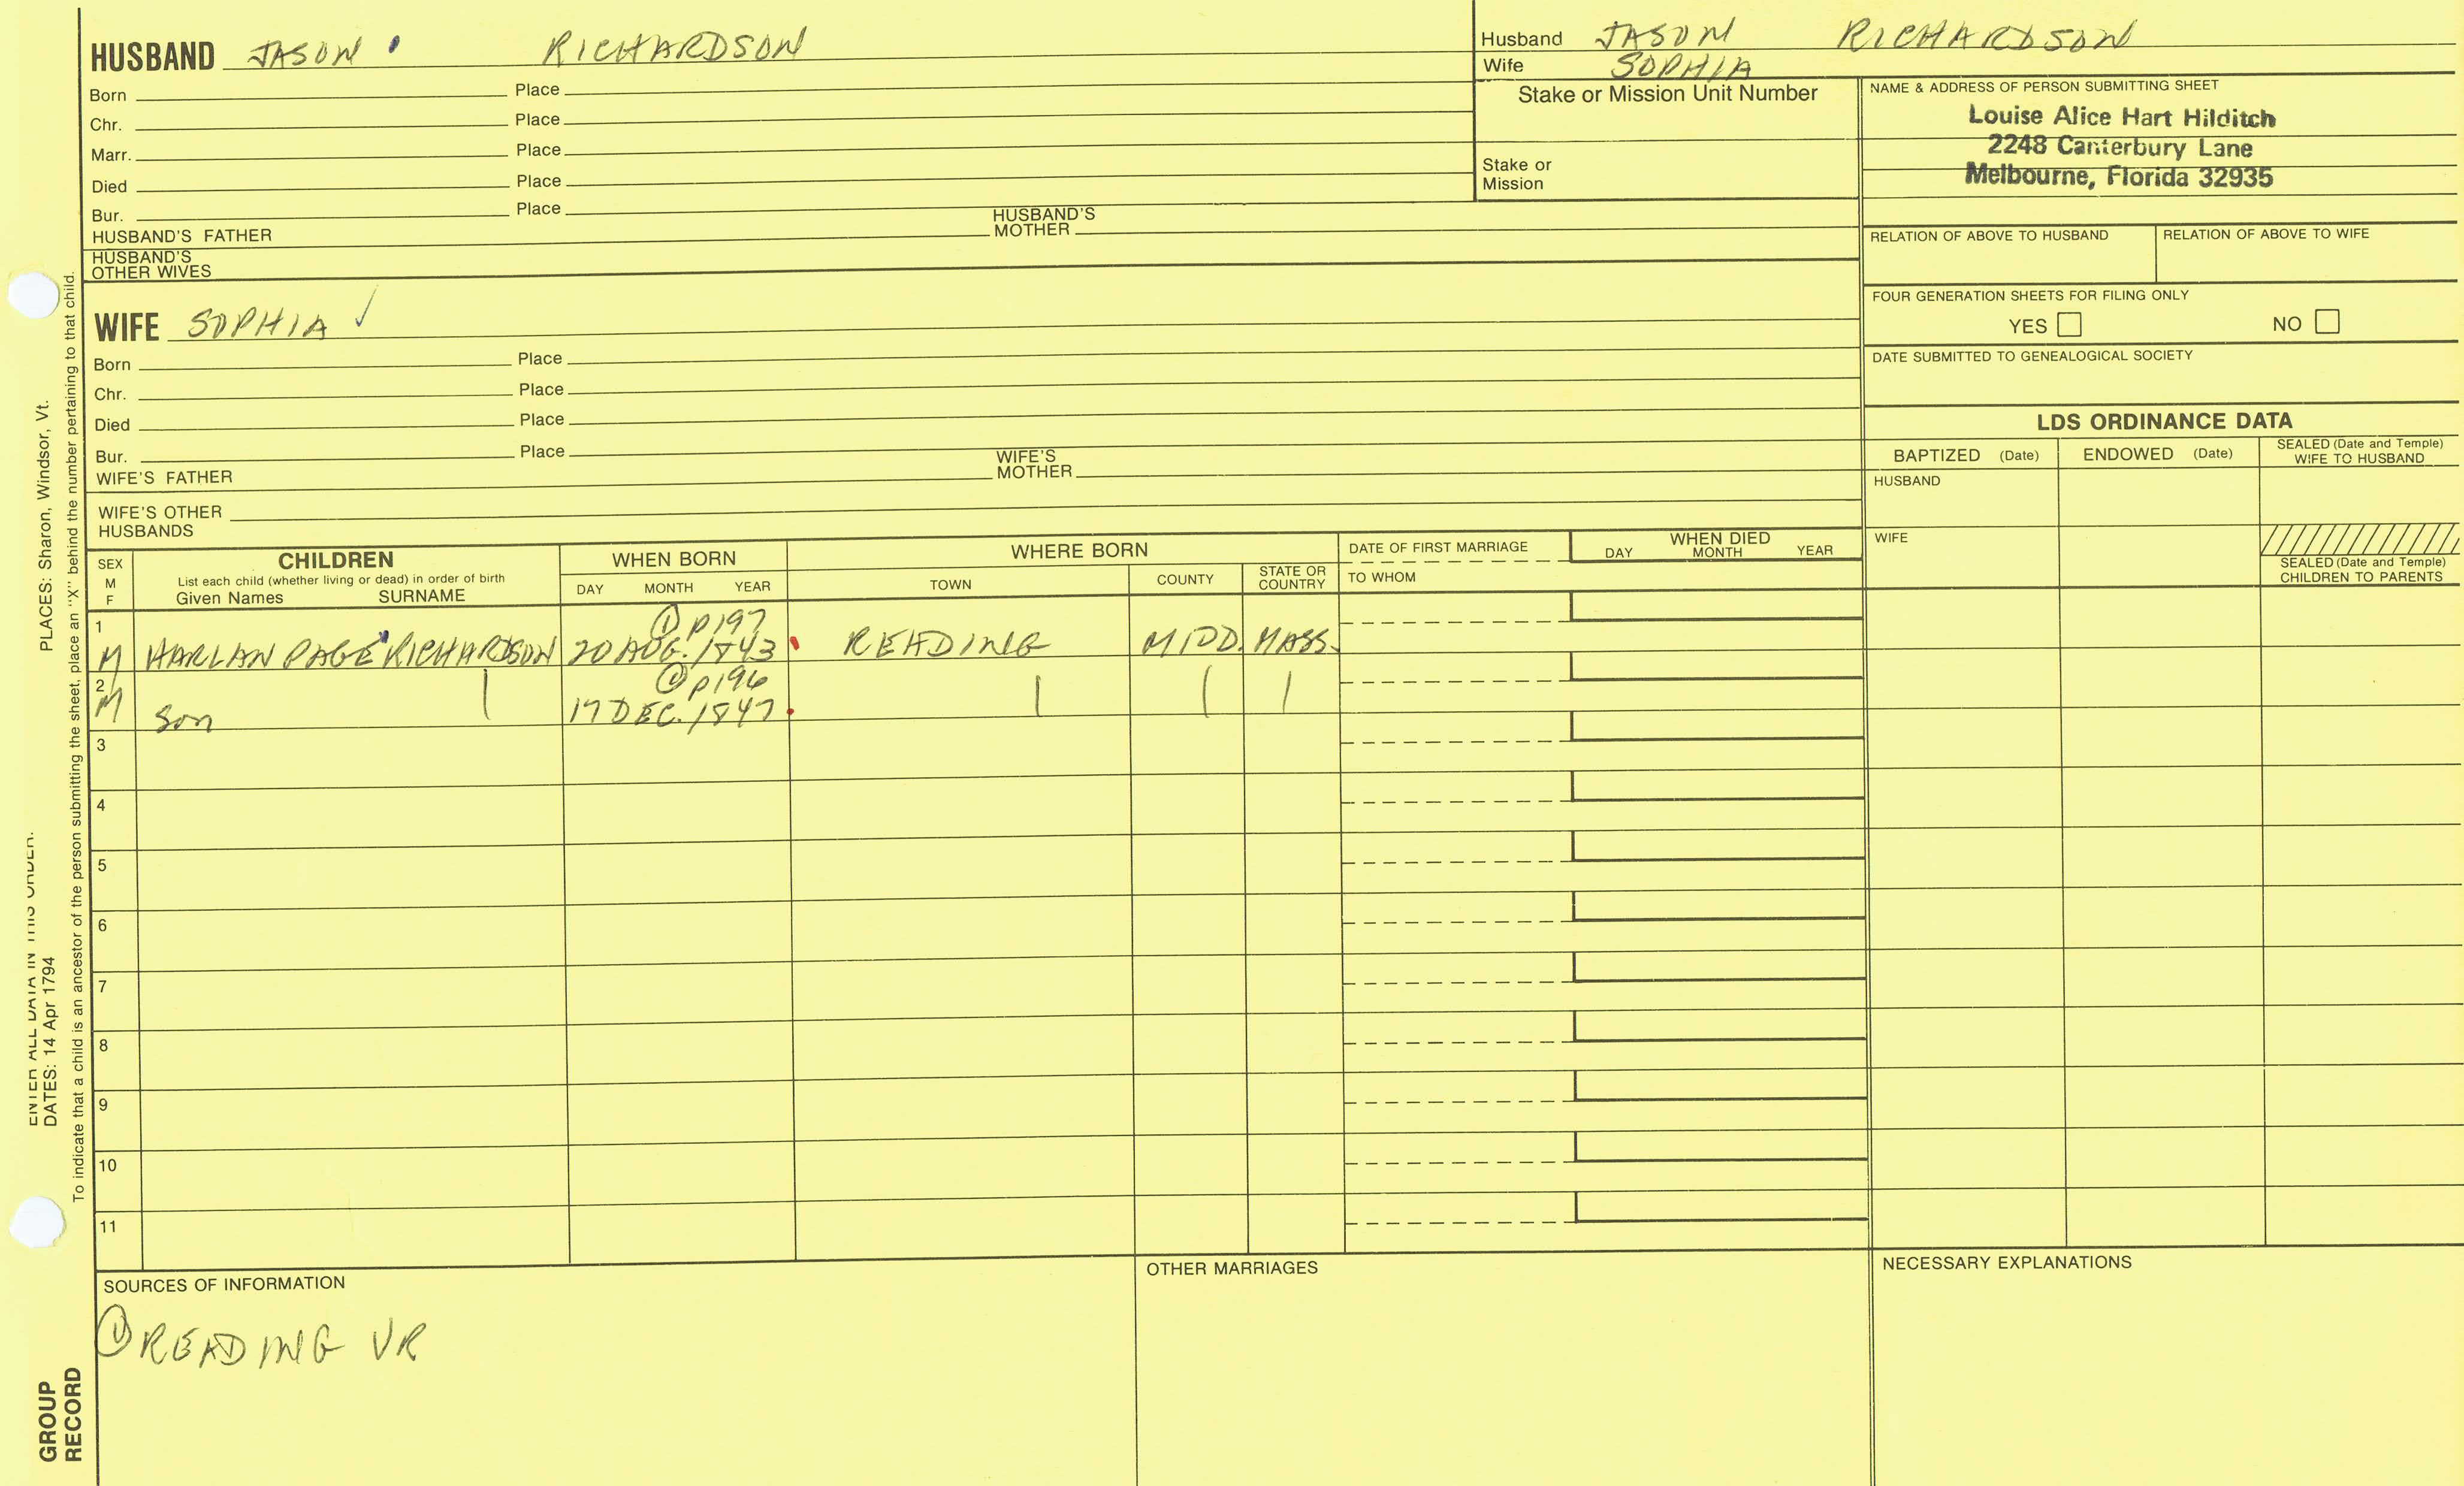 HUSBAND JASON RICHARDSON
Born Place
Chr. Place
Marr. Place
Died Place
Bur. Place
HUSBAND'S FATHER HUSBAND'S MOTHER
HUSBAND'S OTHER WIVES
Husband JASON RICHARDSON
Wife SOPHIA
Stake or Mission Unit Number
Stake or
Mission
NAME & ADDRESS OF PERSON SUBMITTING SHEET
Louise Alice Hart Hilditch
2248 Canterbury Lane
Melbourne, Florida 32935
RELATION OF ABOVE TO HUSBAND RELATION OF ABOVE TO WIFE
FOUR GENERATION SHEETS FOR FILING ONLY
YES NO
DATE SUBMITTED TO GENEALOGICAL SOCIETY
WIFE SOPHIA ✓
Born Place
Chr. Place
Died Place
Bur. Place
WIFE'S FATHER WIFE'S MOTHER
WIFE'S OTHER
HUSBANDS
LDS ORDINANCE DATA
BAPTIZED (Date) ENDOWED (Date) SEALED (Date and Temple) WIFE TO HUSBAND
HUSBAND
WIFE
SEALED (Date and Temple)
CHILDREN TO PARENTS
SEX M F
CHILDREN
List each child (whether living or dead) in order of birth
Given Names SURNAME
WHEN BORN
DAY MONTH YEAR
WHERE BORN
TOWN COUNTY STATE OR COUNTRY
DATE OF FIRST MARRIAGE
TO WHOM
WHEN DIED
DAY MONTH YEAR
1 ① P197
M HARLAN PAGE RICHARDSON 20 AUG. 1843 READING MIDD. MASS.
2 ① P196
M Son | 17 DEC. 1847 | | |
3
4
5
6
7
8
9
10
11
SOURCES OF INFORMATION
① READING VR
OTHER MARRIAGES
NECESSARY EXPLANATIONS
ENTER ALL DATA IN THIS ORDER:
DATES: 14 Apr 1794 PLACES: Sharon, Windsor, Vt.
To indicate that a child is an ancestor of the person submitting the sheet, place an "X" behind the number pertaining to that child.
GROUP
RECORD